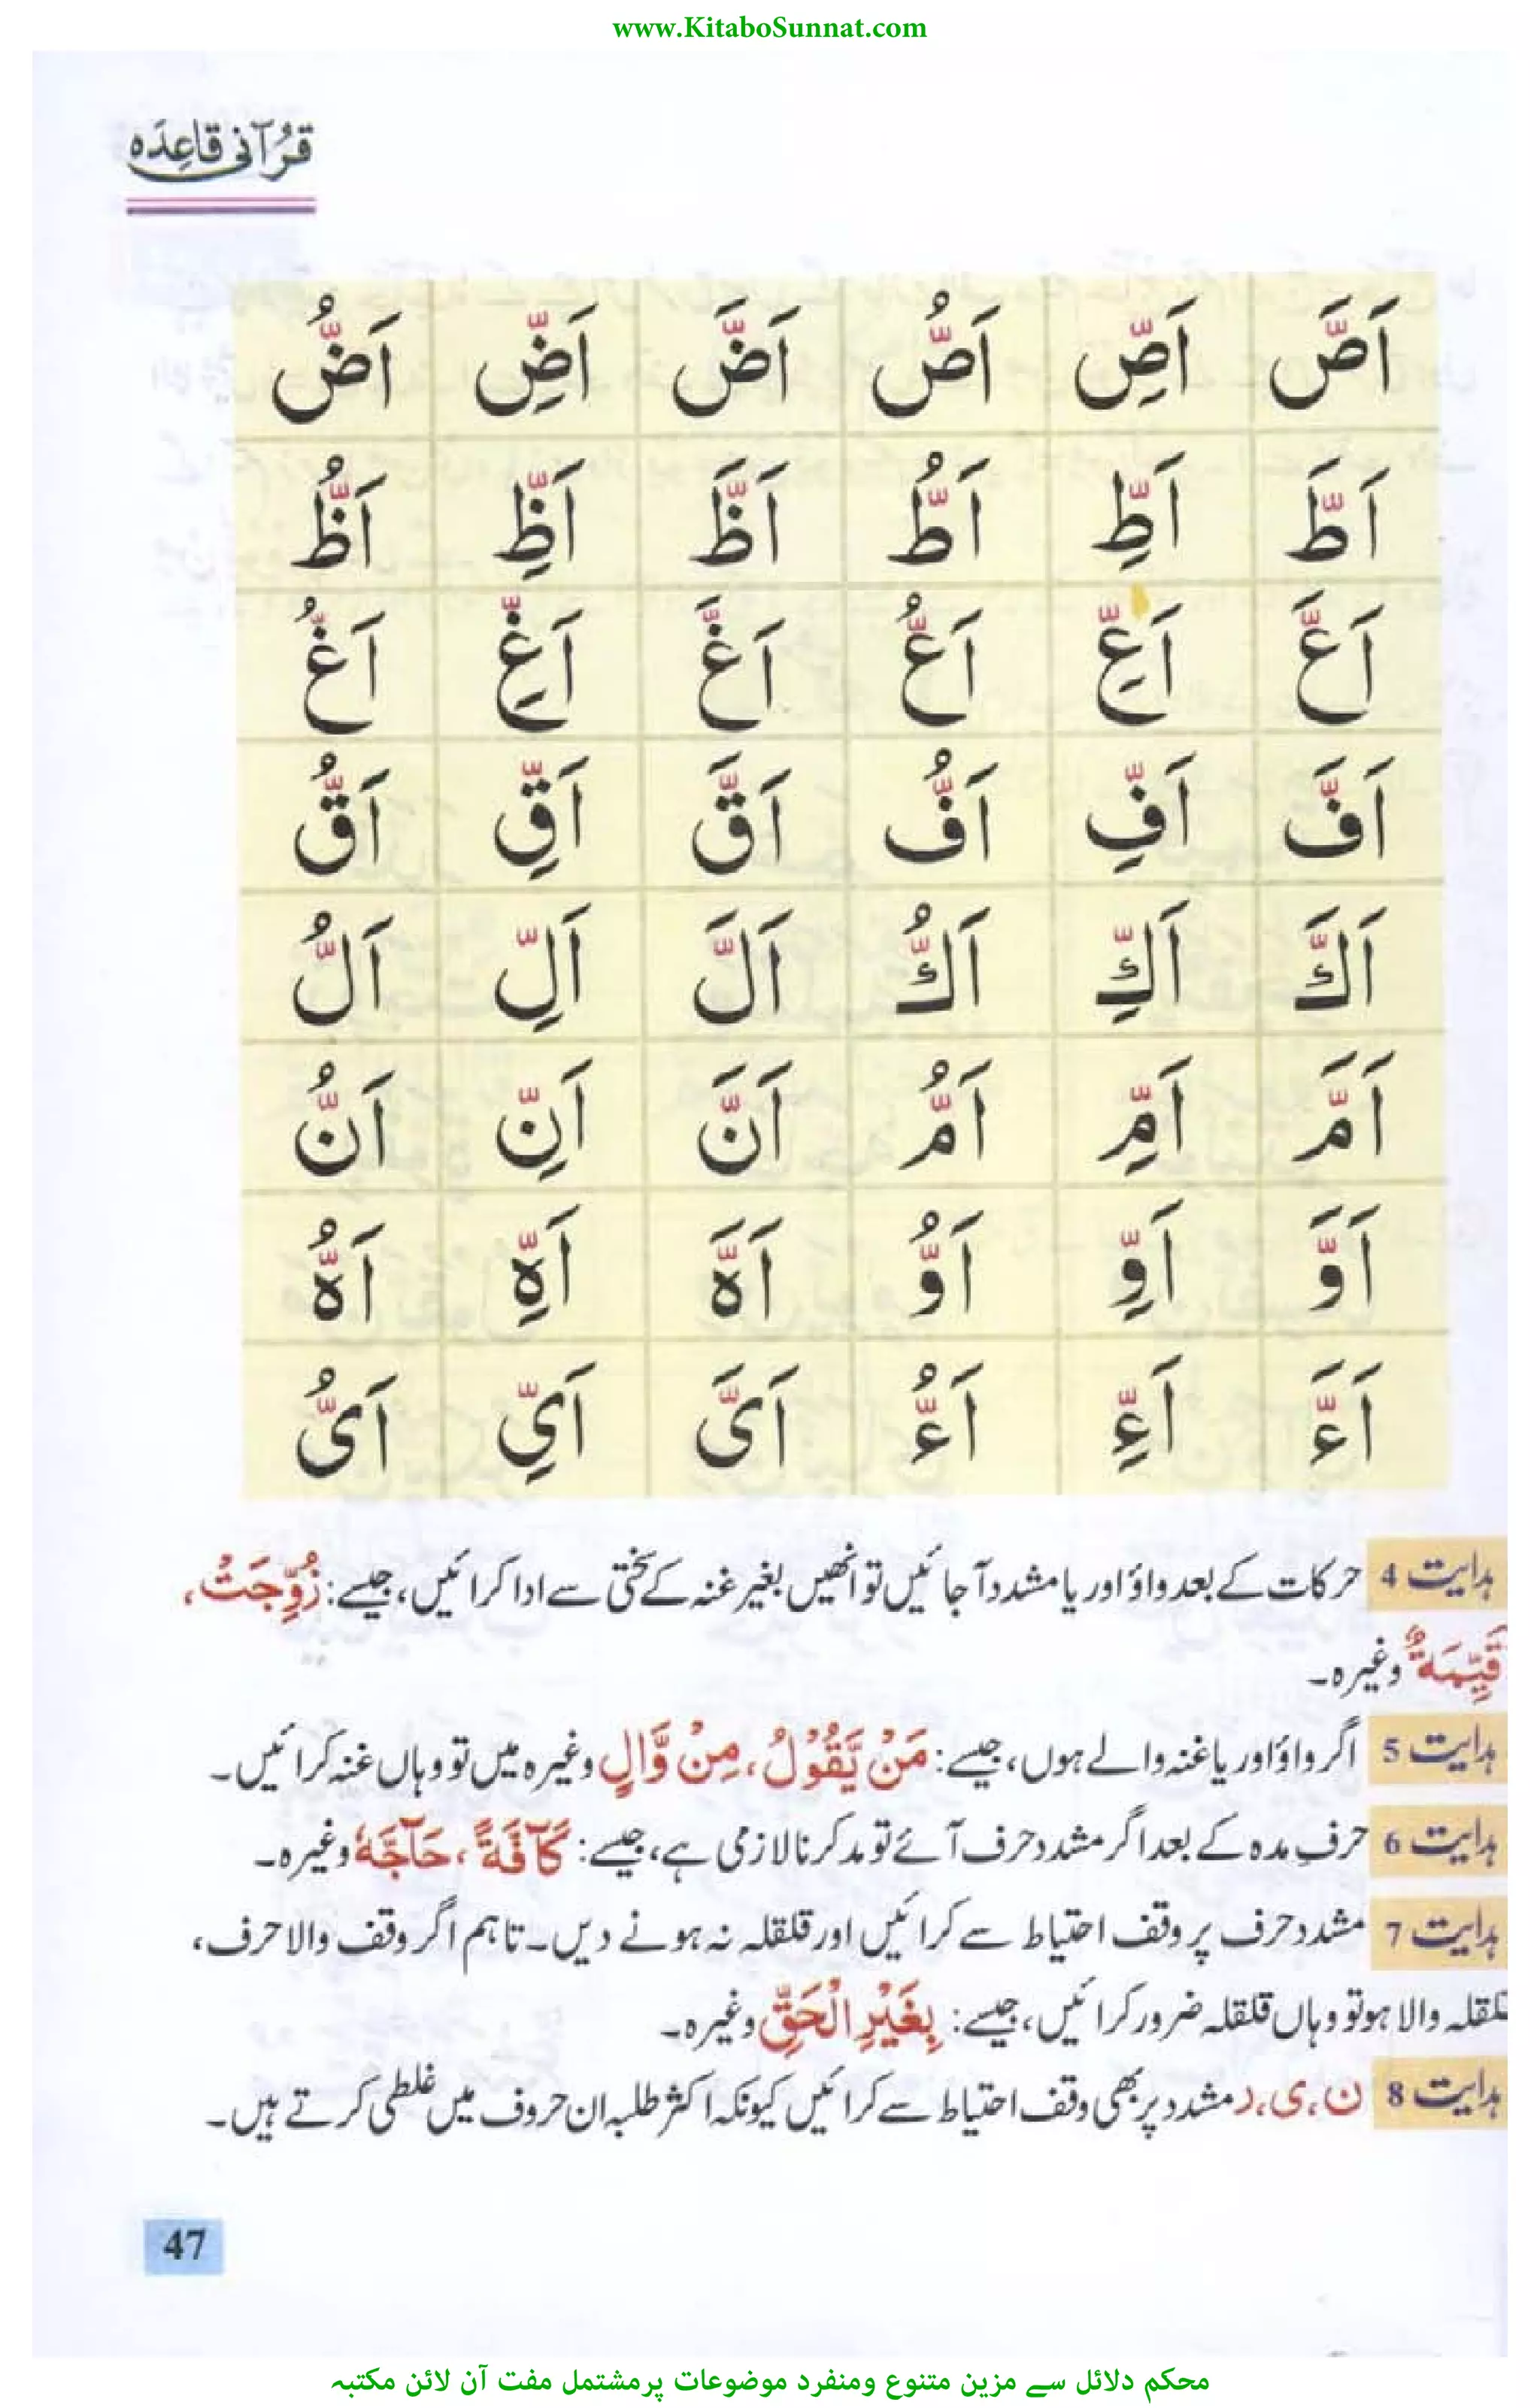 www.KitaboSunnat.com
قُرآنی قاعِدَہ
اَصَّ اَصِّ اَصُّ اَضَّ اَضِّ اَضُّ
اَطَّ اَطِّ اَطُّ اَظَّ اَظِّ اَظُّ
اَعَّ اَعِّ اَعُّ اَغَّ اَغِّ اَغُّ
اَفَّ اَفِّ اَفُّ اَقَّ اَقِّ اَقُّ
اَكَّ اَكِّ اَكُّ اَلَّ اَلِّ اَلُّ
اَمَّ اَمِّ اَمُّ اَنَّ اَنِّ اَنُّ
اَوَّ اَوِّ اَوُّ اَہَّ اَہِّ اَہُّ
اَءَّ اَءِّ اَءُّ اَیَّ اَیِّ اَیُّ
ہدایت 4 حرکات کے بعد واؤ اور یا مشدد آ جائیں تو انھیں بغیر غنہ کے سختی سے ادا کرائیں، جیسے: زُوِّجَتْ،
قَیِّمَةٌ وغیرہ۔
ہدایت 5 اگر واؤ اور یا غنہ والے ہوں، جیسے: مَنْ یَّقُوْلُ، مِنْ وَّالٍ وغیرہ میں تو وہاں غنہ کرائیں۔
ہدایت 6 حرفِ مدہ کے بعد اگر مشدد حرف آئے تو مد کرنا لازمی ہے، جیسے: كَآفَّةً، حَآجَّهٗ وغیرہ۔
ہدایت 7 مشدد حرف پر وقف احتیاط سے کرائیں اور قلقلہ نہ ہونے دیں۔ تاہم اگر وقف والا حرف،
قلقلہ والا ہو تو وہاں قلقلہ ضرور کرائیں، جیسے: بِغَیْرِ الْحَقِّ وغیرہ۔
ہدایت 8 ن، ی، ر مشدد پر بھی وقف احتیاط سے کرائیں کیونکہ اکثر طلبہ ان حروف میں غلطی کرتے ہیں۔
47
محکم دلائل سے مزین متنوع ومنفرد موضوعات پرمشتمل مفت آن لائن مکتبہ